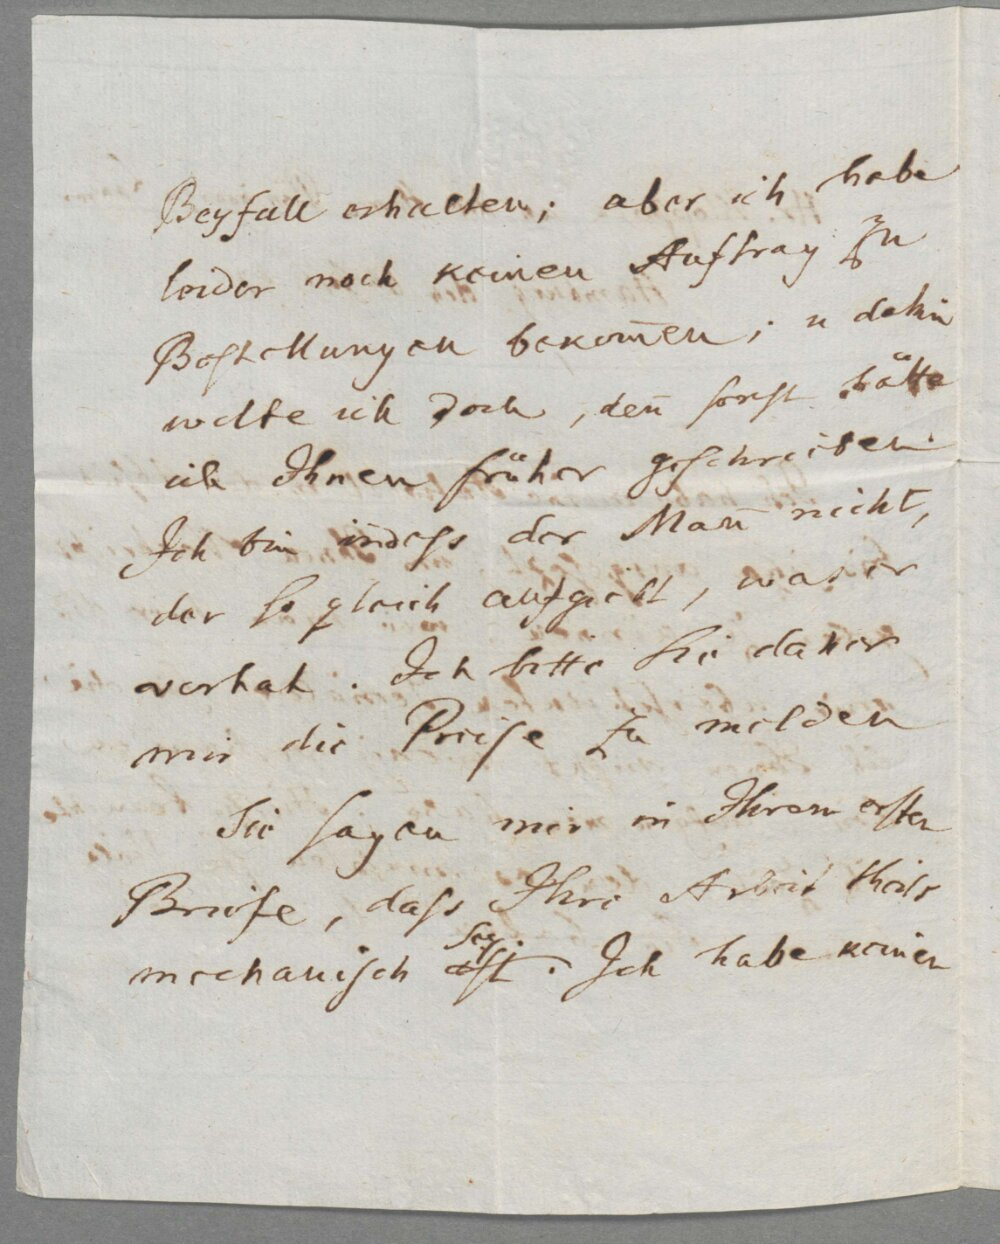 Beyfall erhalten; aber ich habe
leider noch keinen Auftrag zu
Bestellungen bekom̅en; u dahin
wollte ich doch, den̅ sonst hätte
ich Ihnen früher geschrieben.
Ich bin indess der Man̅ nicht,
der so gleich aufgiebt, was er
vorhat. Ich bitte Sie daher
mir die Preise zu melden
Sie sagen mir in Ihrem ersten
Briefe, dass Ihre Arbeit theils
mechanisch sey. Ich habe keinen